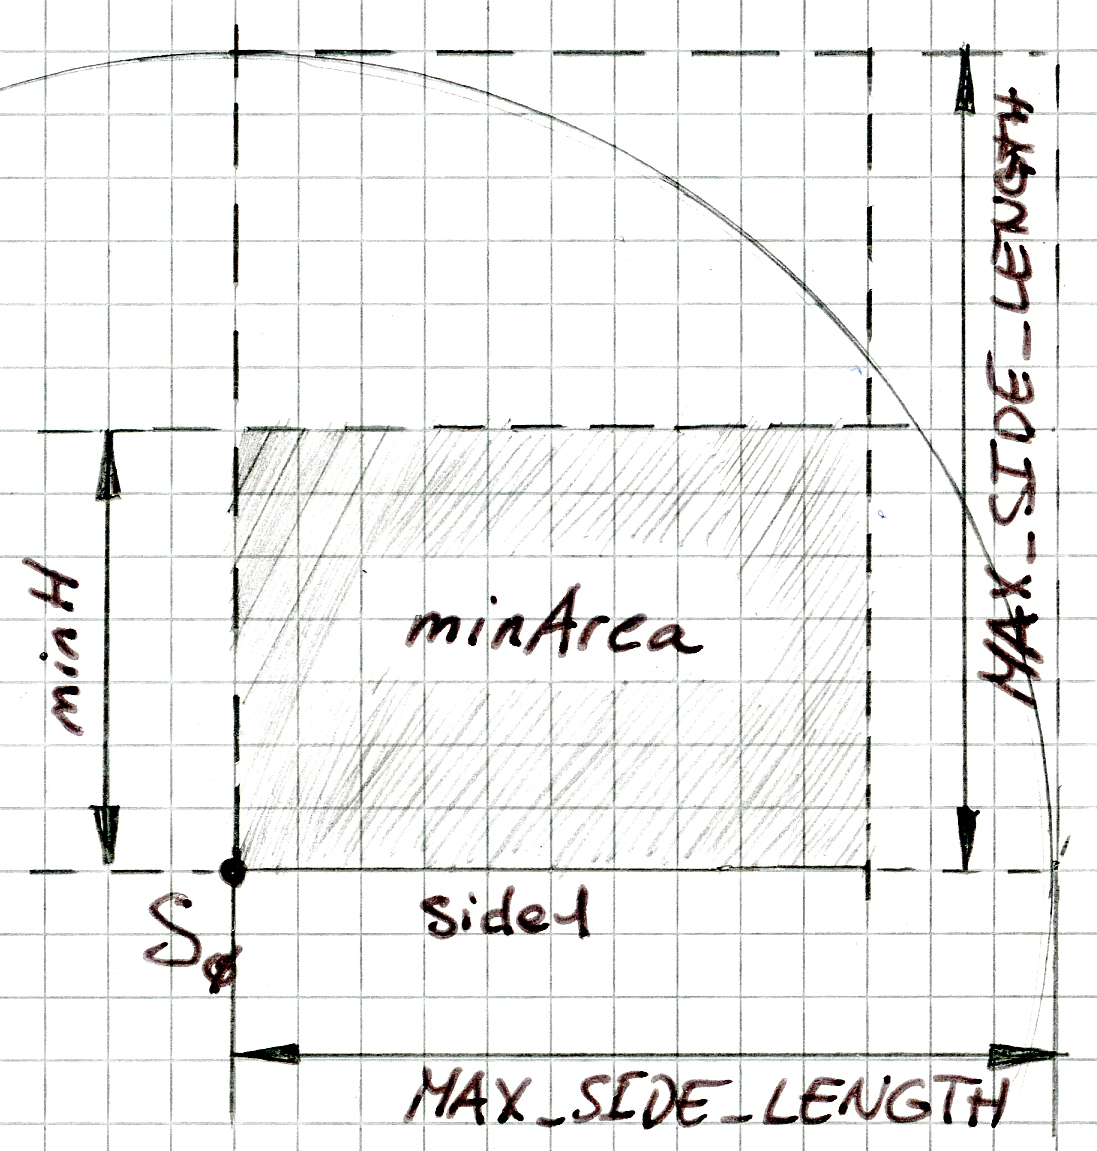 MAX_SIDE_LENGTH
minH
minArea
side1
S₀
MAX_SIDE_LENGTH